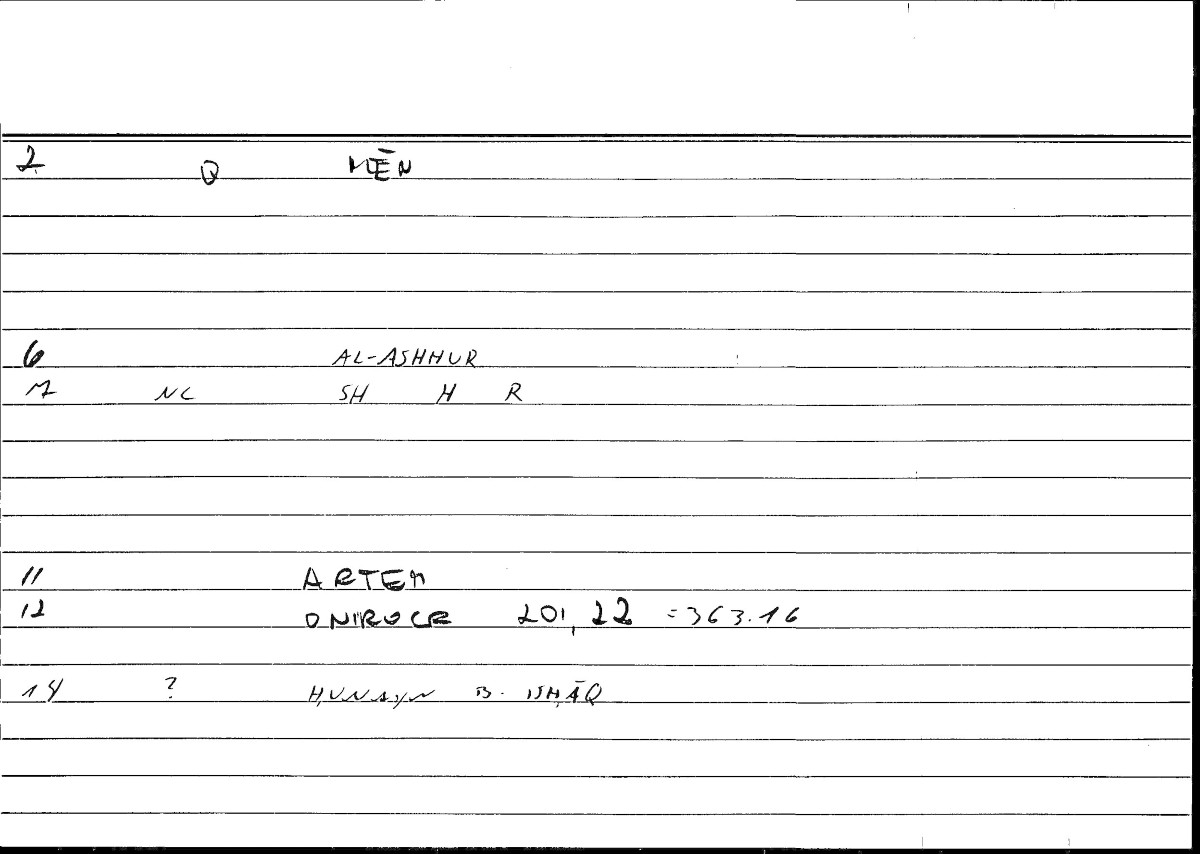 2 Q MĒN
6 AL-ASHHUR
7 NC SH H R
11 ARTEM
12 ONIROCR 201,22 =363.16
14 ? ḤUNAYN B. ISḤĀQ